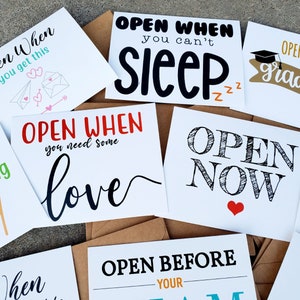 Open When
you get this
OPEN WHEN
you can't
SLEEP
zzz
OPEN
grad
OPEN WHEN
you need some
love
OPEN
NOW
When
OPEN BEFORE
YOUR